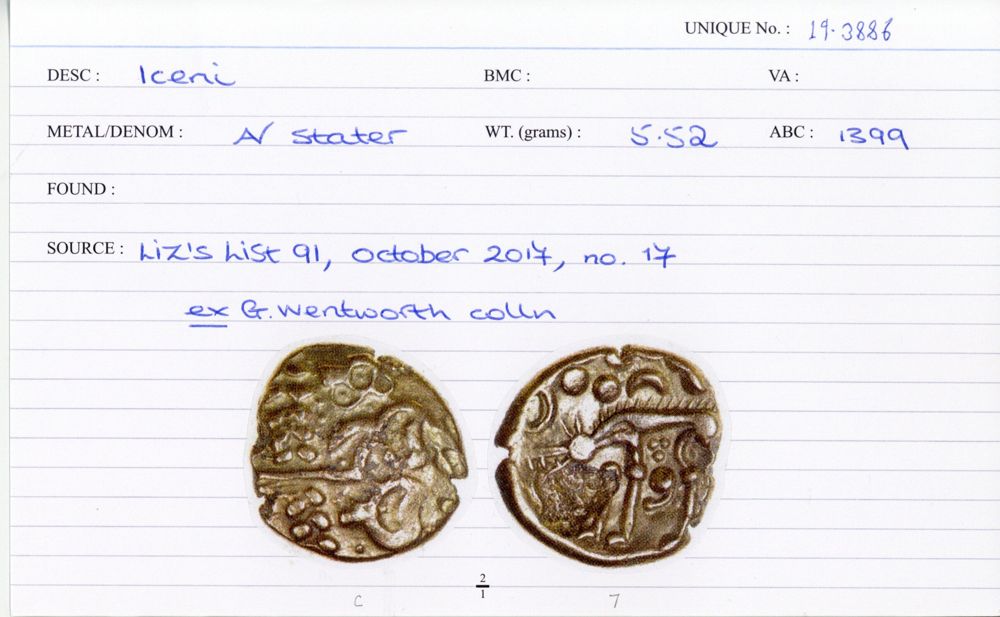 UNIQUE No. : 19.3886
DESC : Iceni BMC : VA :
METAL/DENOM : A/ Stater WT. (grams) : 5.52 ABC : 1399
FOUND :
SOURCE : Liz's List 91, October 2017, no. 17
ex G. Wentworth colln
2/1
C 7